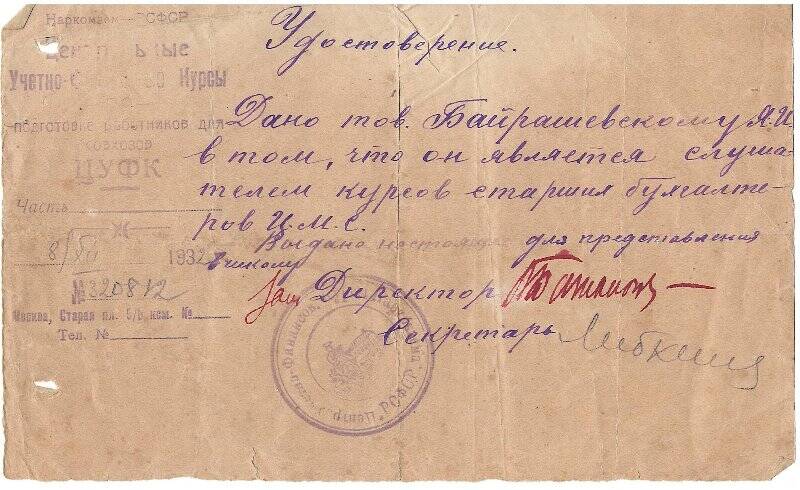 Наркомзем РСФСР
Учетно- Курсы
подготовке работников для
совхозов
ЦУФК
Часть
8/XII 1932
№320812
Москва, Старая пл. 5/8 ком. №
Тел. №
Удостоверение.
Дано тов. Байрашевскому Я.И.
в том, что он является слуша-
телем курсов старших бухгалте-
ров Ц.М.С.
Выдано настоящее для представления
Зам Директор
Секретарь
РСФСР